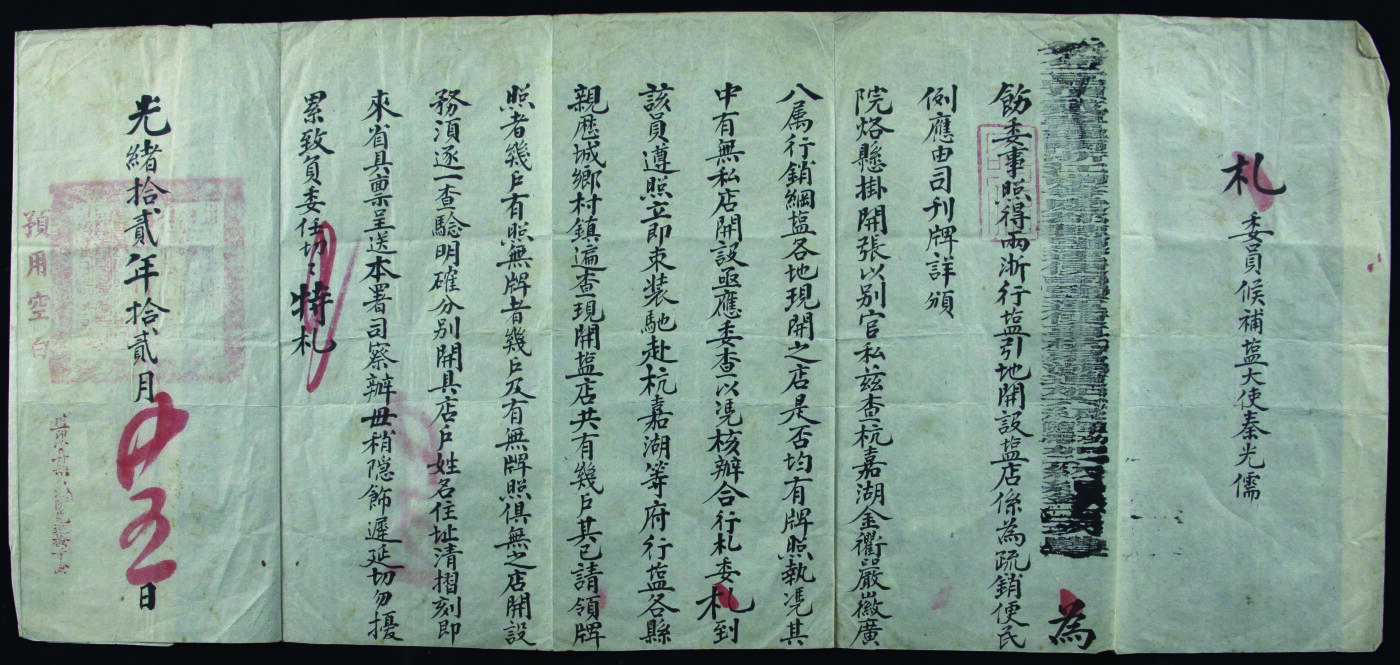 札委員候補塩大使秦光儒
為
飭委事照得兩浙行塩引地開設塩店係為疏銷便民
例應由司刋牌詳頒
院烙懸掛開張以别官私兹查杭嘉湖金衢嚴徽廣
八属行銷綱塩各地現開之店是否均有牌照執凴其
中有無私店開設亟應委查以凴核辦合行札委札到
該員遵照立即束装馳赴杭嘉湖等府行塩各縣
親歷城鄉村鎮遍查現開塩店共有幾戶其已請領牌
照者幾戶有照無牌者幾戶及有無牌照俱無之店開設
務須逐一查驗明確分别開具店戶姓名住址清摺刻即
來省具禀呈送本署司察辦毋稍隱飾遲延切勿擾
累致負委任切〻特札
光緒拾貳年拾貳月
日
預用空白